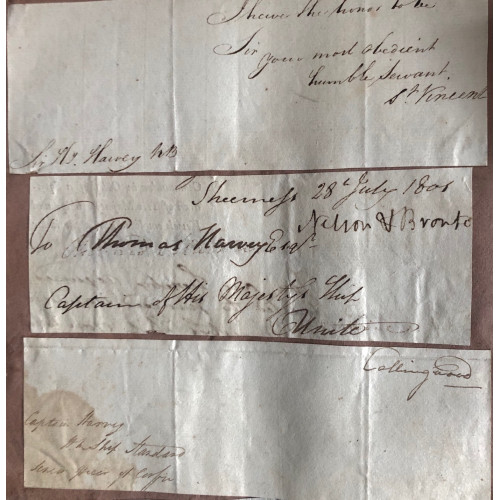 I have the honor to be
Sir
your most obedient
humble Servant.
St. Vincent
Sir Hy. Harvey KB
Sheerness 28th July 1801
Nelson & Bronte
To Thomas Harvey Esqr.
Captain of His Majesty's Ship
Unite
Collingwood
Captain Harvey
Ship Standard